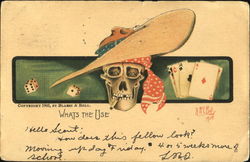 COPYRIGHT 1905, BY
WHAT'S THE USE
Hello Scout,
How does this fellow look?
Moving up day Friday. 4 or 5 weeks more of
school.